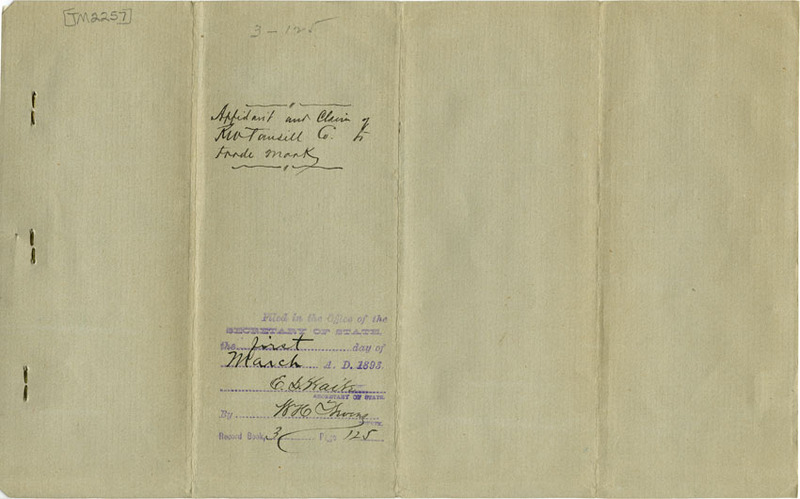 [TM2257]
3-125
Affidavit and Claim of
R.W. Tansill Co. to
trade mark
Filed in the Office of the
SECRETARY OF STATE,
the first day of
March A. D. 1893
E. G. Waite
SECRETARY OF STATE.
By
Record Book 3 Page 125